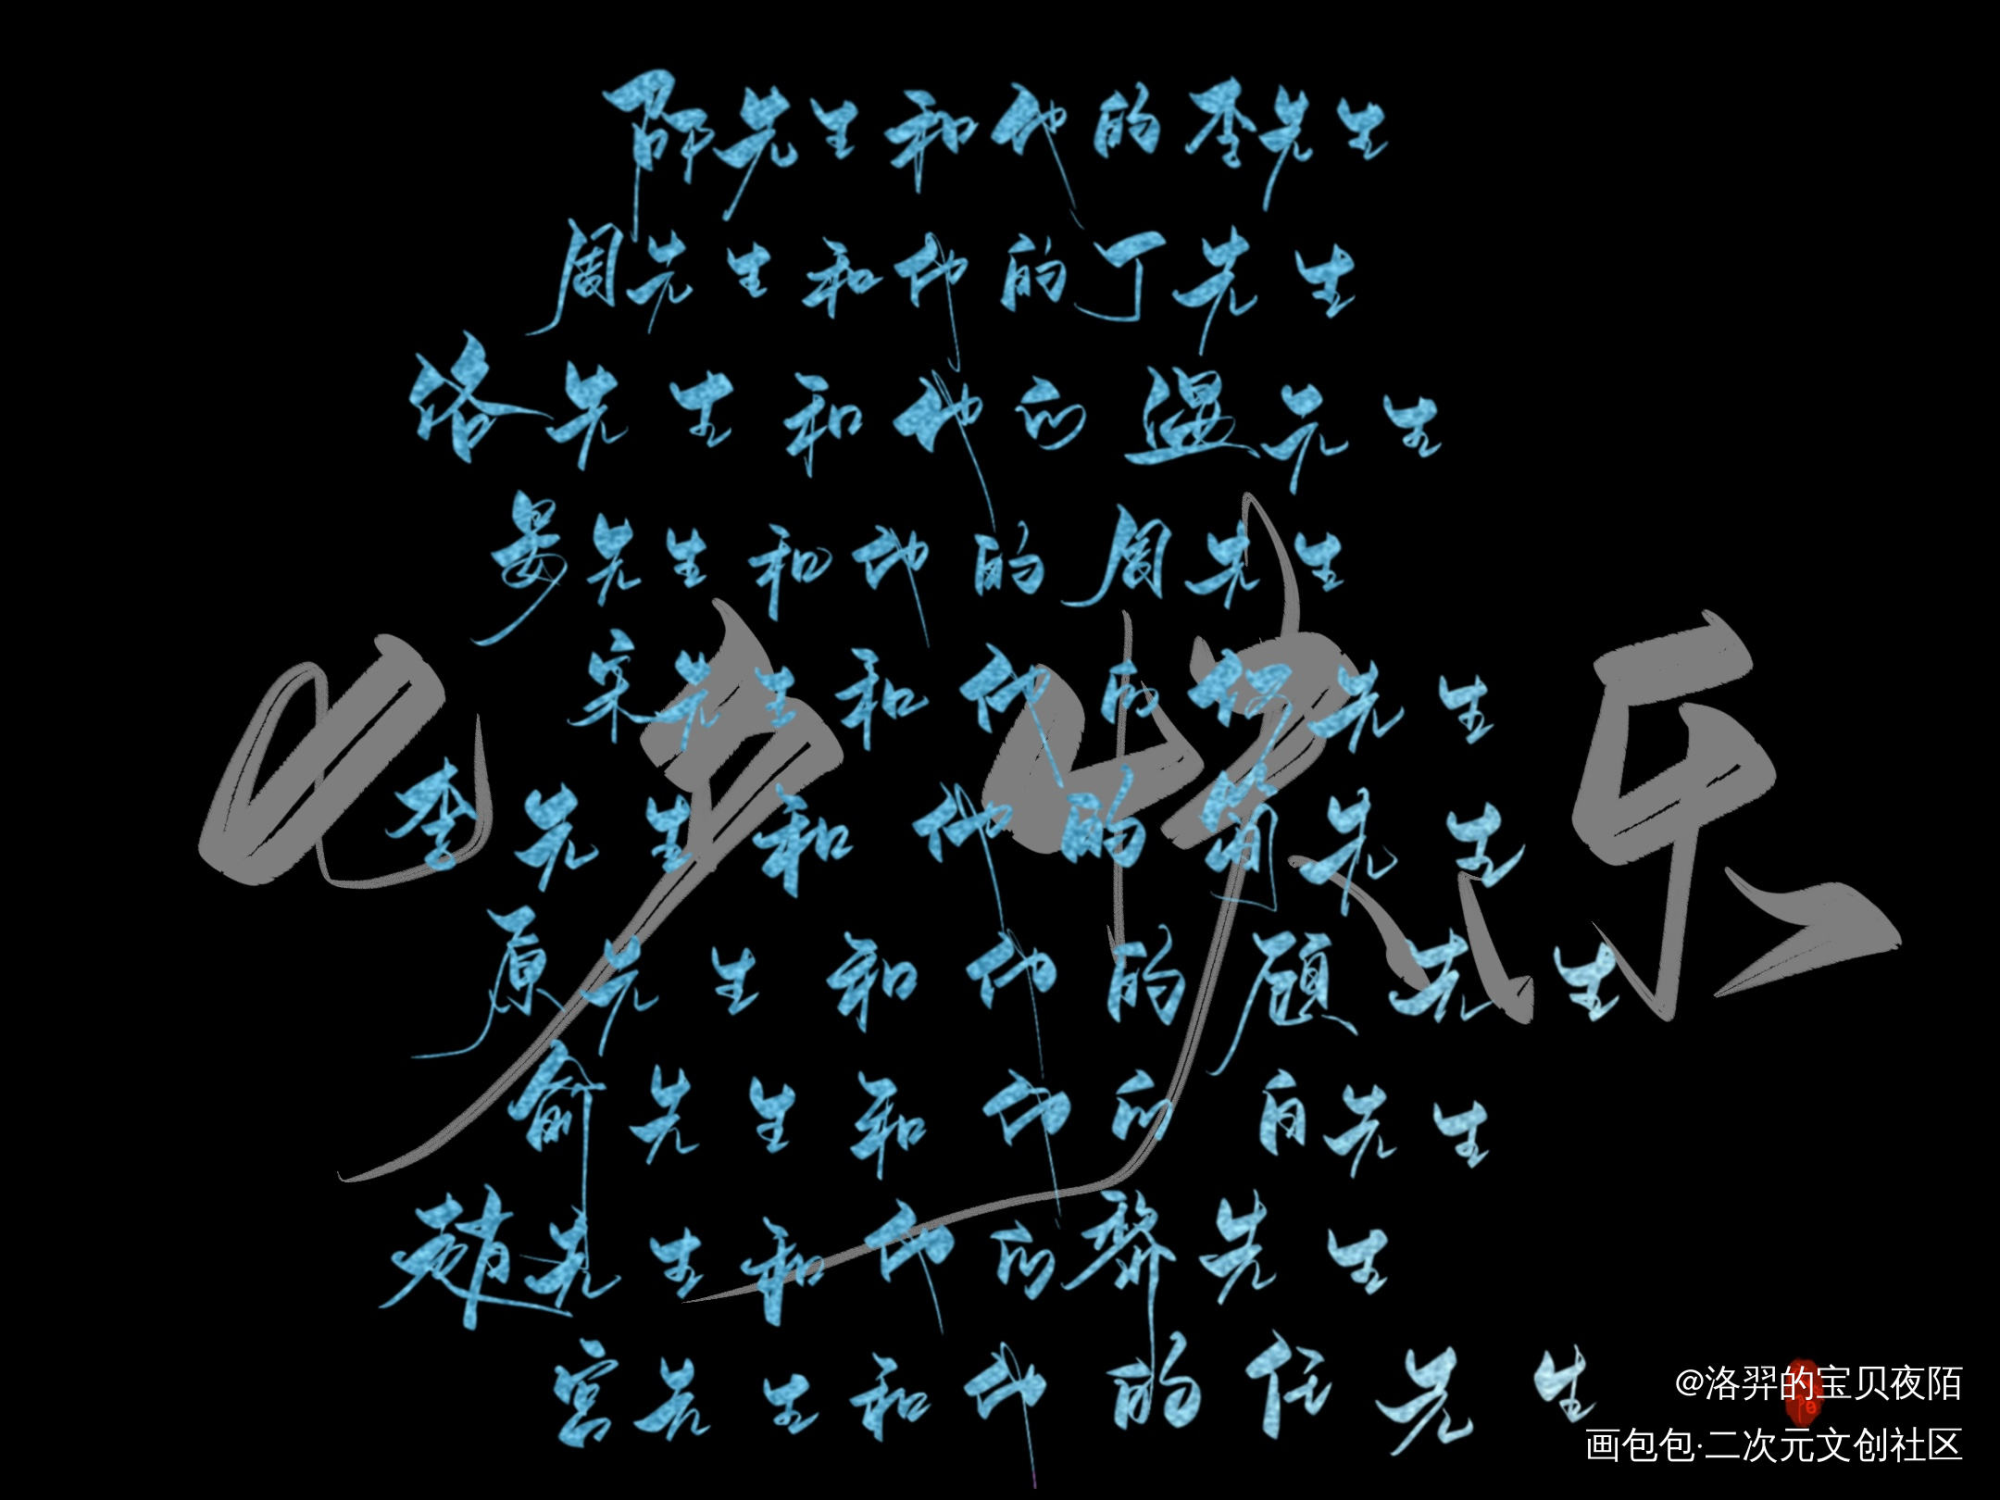 邵先生和他的李先生
周先生和他的丁先生
洛先生和他的温先生
晏先生和他的周先生
宋先生和他的何先生
李先生和他的简先生
原先生和他的顾先生
俞先生和他的白先生
赵先生和他的黎先生
宫先生和他的任先生
七夕快乐
@洛羿的宝贝夜陌
画包包·二次元文创社区